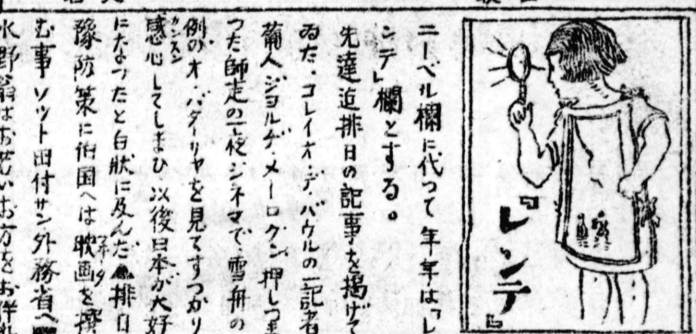 『レンテ』
ニーベル欄に代つて年年は『レ
ンテ』欄とする。
先達迄排日の記事を掲げて
ゐた、コレイオ・デ・パウルの一記者
葡人ジヨルヂ・メーログン、押しつま
つた師走の一夜シネマで、雪舟の
例のオ・バターリヤを見てすつかり
感心してしまひ以後日本が大好
カンスン
になつたと白状に及んだ 排日
豫防策に伯国へは映画を
む事ソツト田付サン外務省へ
水野 はお